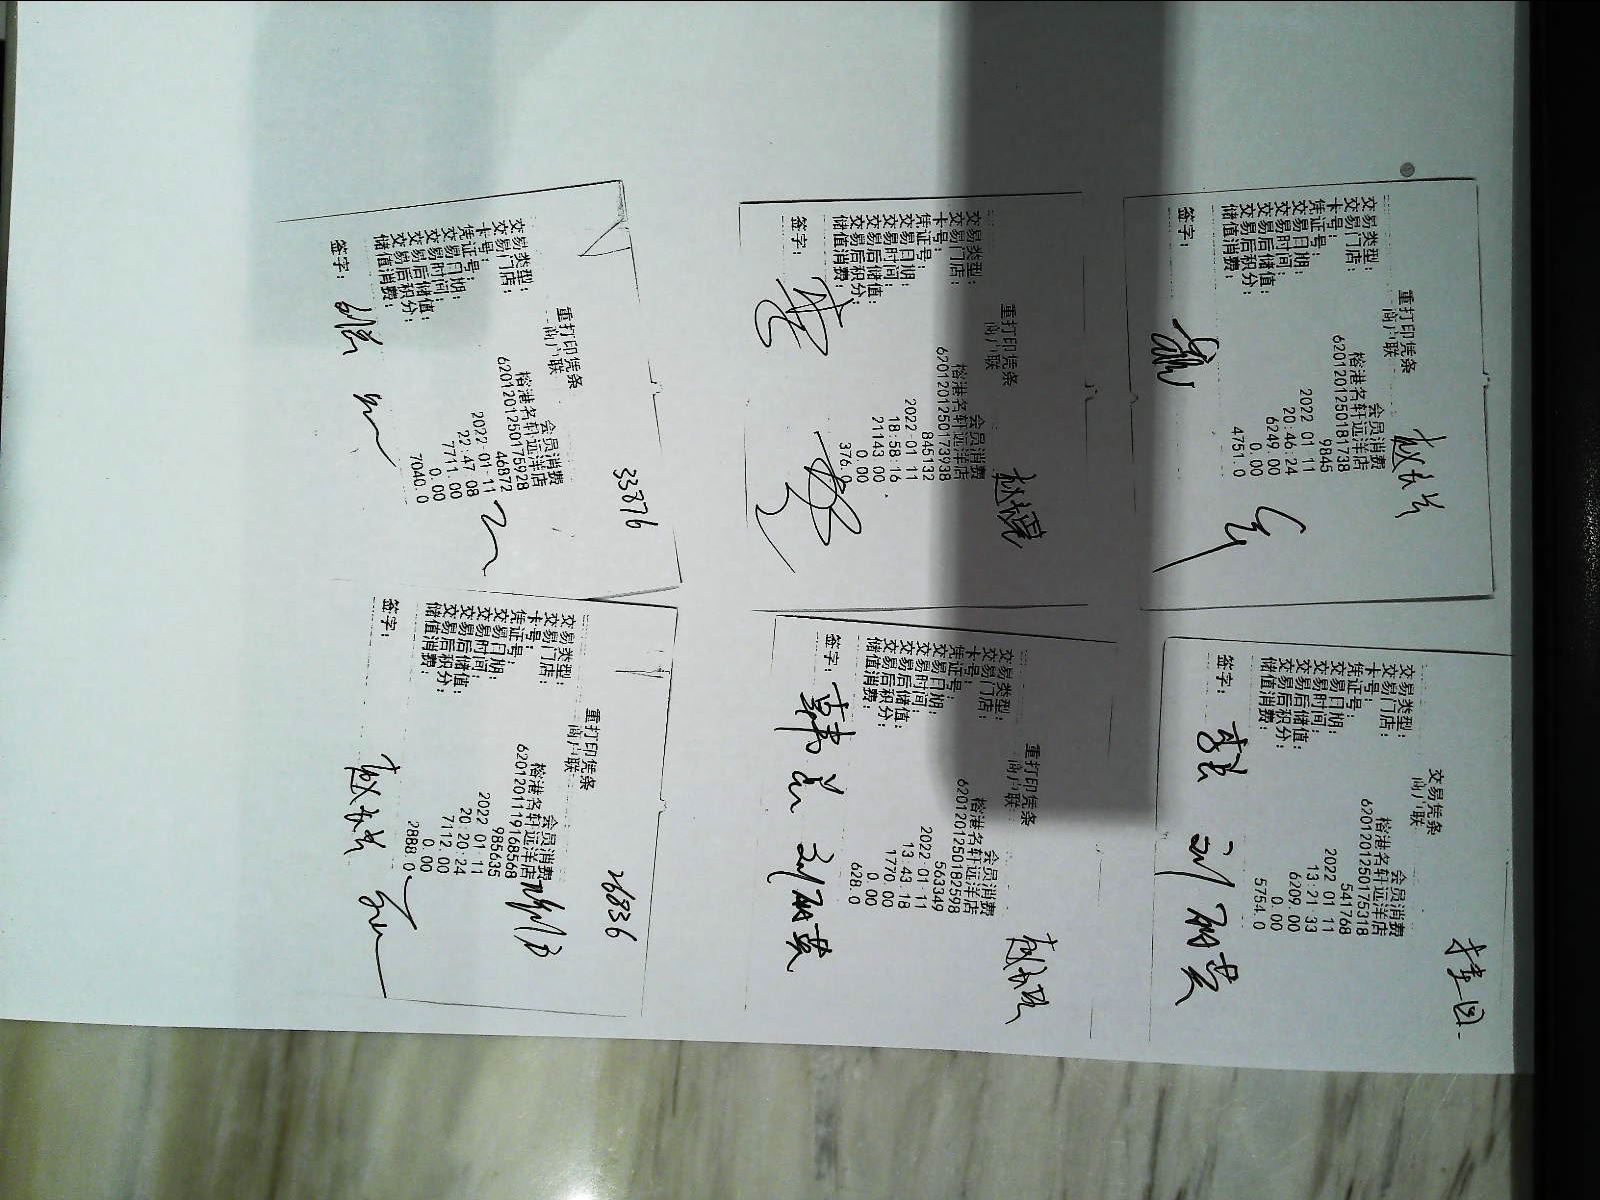 重打印凭条
商户联
交易类型： 会员消费
交易门店： 榕港名轩远洋店
卡号： 6201201250181738
凭证号： 9845
交易日期： 2022 01 11
交易时间： 20:46:24
交易后储值： 6249.00
交易后积分： 0.00
储值消费： 4751.0
签字：
交易凭条
商户联
交易类型： 会员消费
交易门店： 榕港名轩远洋店
卡号： 6201201250175318
凭证号： 541768
交易日期： 2022 01 11
交易时间： 13:21 33
交易后储值： 6209.00
交易后积分： 0.00
储值消费： 5754.0
签字：
重打印凭条
商户联
交易类型： 会员消费
交易门店： 榕港名轩远洋店
卡号： 6201201250173938
凭证号： 845132
交易日期： 2022 01 11
交易时间： 18:58:16
交易后储值： 21143 00
交易后积分： 0.00
储值消费： 376.0
签字：
重打印凭条
商户联
交易类型： 会员消费
交易门店： 榕港名轩远洋店
卡号： 6201201250182598
凭证号： 563349
交易日期： 2022-01-11
交易时间： 13:43 18
交易后储值： 1770.00
交易后积分： 0.00
储值消费： 628.0
签字：
33876
重打印凭条
商户联
交易类型： 会员消费
交易门店： 榕港名轩远洋店
卡号： 6201201250175928
凭证号： 46872
交易日期： 2022 01 11
交易时间： 22:47 08
交易后储值： 7711.00
交易后积分： 0.00
储值消费： 7040.0
签字：
26836
重打印凭条
商户联
交易类型： 会员消费
交易门店： 榕港名轩远洋店
卡号： 6201201119168568
凭证号： 985635
交易日期： 2022 01 11
交易时间： 20:20:24
交易后储值： 7112.00
交易后积分： 0.00
储值消费： 2888.0
签字：